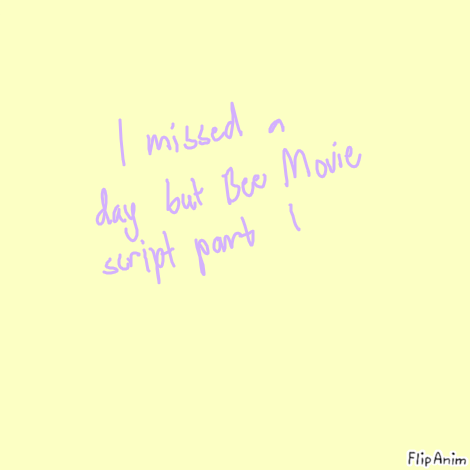 I missed a
day but Bee Movie
script part 1
FlipAnim